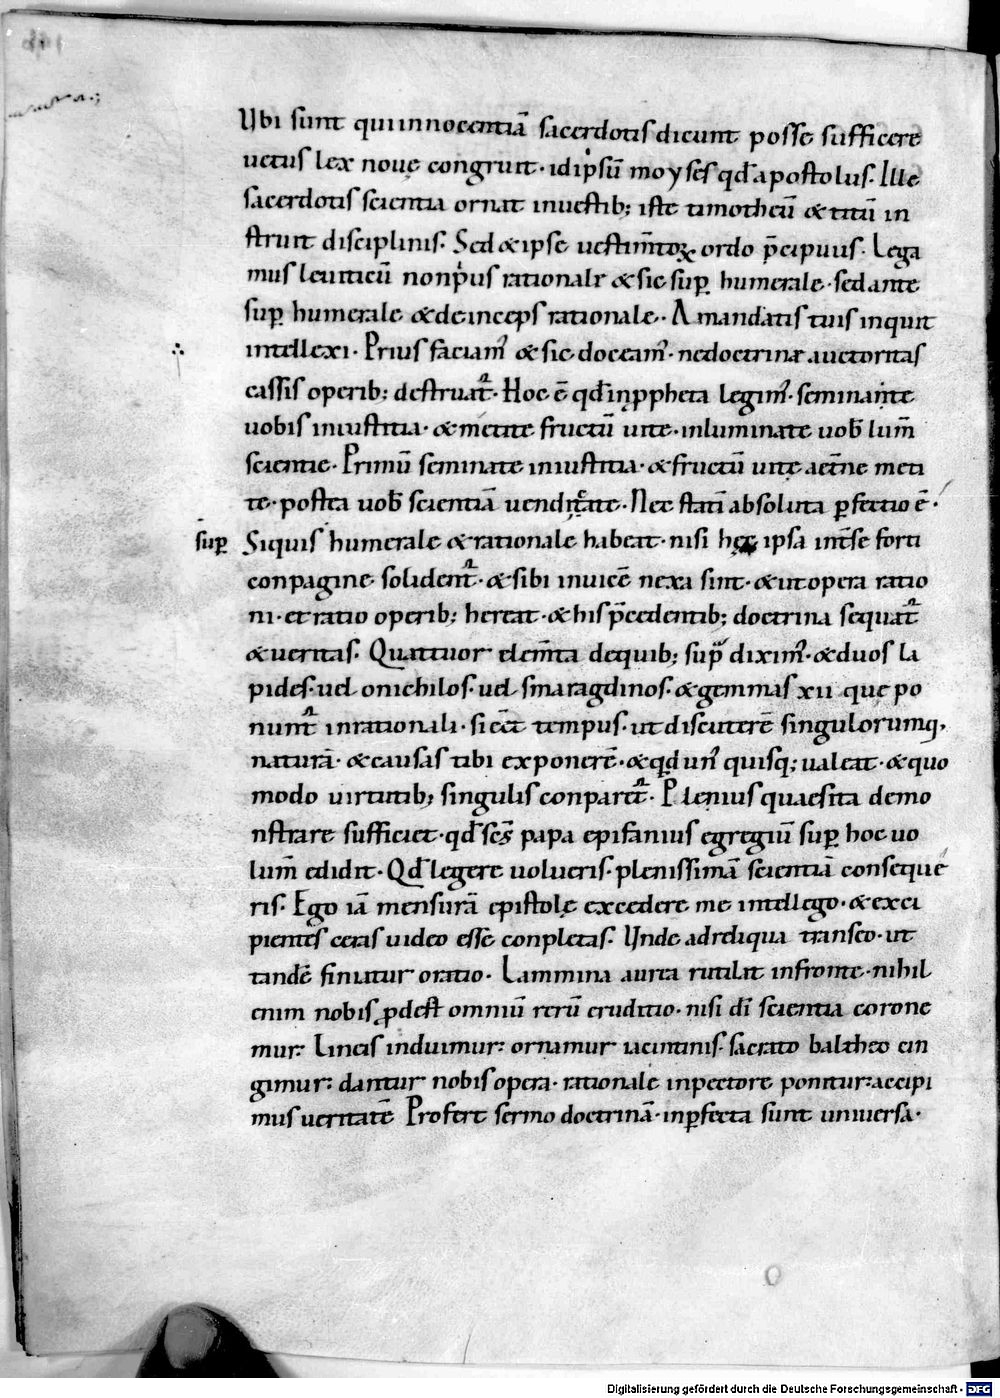 Ubi sunt qui innocentiā sacerdotis dicunt posse sufficere
uetus lex noue congruit· idipsū moyses qđ apostolus· Ille
sacerdotis scientia ornat in uestib; iste timotheū & titū in
struit disciplinis· Sed & ipse uestimtoꝝ ordo p̄cipuus· Lega
mus leuiticū non pus rationale & sic sup humerale· sed ante
sup humerale & deinceps rationale·· A mandatis tuis inquit
intellexi· Prius faciam & sic doceam· ne doctrinæ auctoritas
cassis operib; destruat· Hoc ē qđ in ꝓpheta legim· seminate
uobis in iustitia· & metite fructū uite· inluminate uob lum̄
scientie· Primū seminate in iustitia· & fructū uitę aet̄ne meti
te· postea uob scientiā uenditate· Nec stati absoluta ꝑfectio ē·
sup Siquis humerale & rationale habeat· nisi hęc ipsa int̄se forti
conpagine solident· & sibi inuicē nexa sint· & ut opera ratio
ni· et ratio operib; hereat· & his p̄cedentib; doctrina sequat
& ueritas· Quattuor elem̄ta de quib; sup̄ dixim· & duos la
pides· uel onichilos· uel smaragdinos· & gemmas xii que po
nunt in rationali· si eēt tempus· ut discuterē singulorumq,
naturā· & causas tibi exponerē· & qđ un quisq; ualeat· & quo
modo uirtutib; singulis conparet· Plenius quaesita demo
nstrare sufficiet· qđ scs papa epifanius egregiū sup hoc uo
lum̄ edidit· Qđ legere uolueris· plenissimā scientiā conseque
ris· Ego iā mensurā epistolę excedere me intellego· & exci
pientes ceras uideo esse conpletas· Unde ad reliqua transeo· ut
tandē finiatur oratio· Lammina aurea rutilat in fronte· nihil
enim nobis ꝓdest omniū rerū eruditio· nisi dī scientia corone
mur: Lineis induimur: ornamur iacintinis· sacrato baltheo cin
gimur: dantur nobis opera· rationale in pectore ponitur: accipi
mus ueritatē Profert sermo doctrinā· inꝑfecta sunt uniuersa·
Digitalisierung gefördert durch die Deutsche Forschungsgemeinschaft - DFG